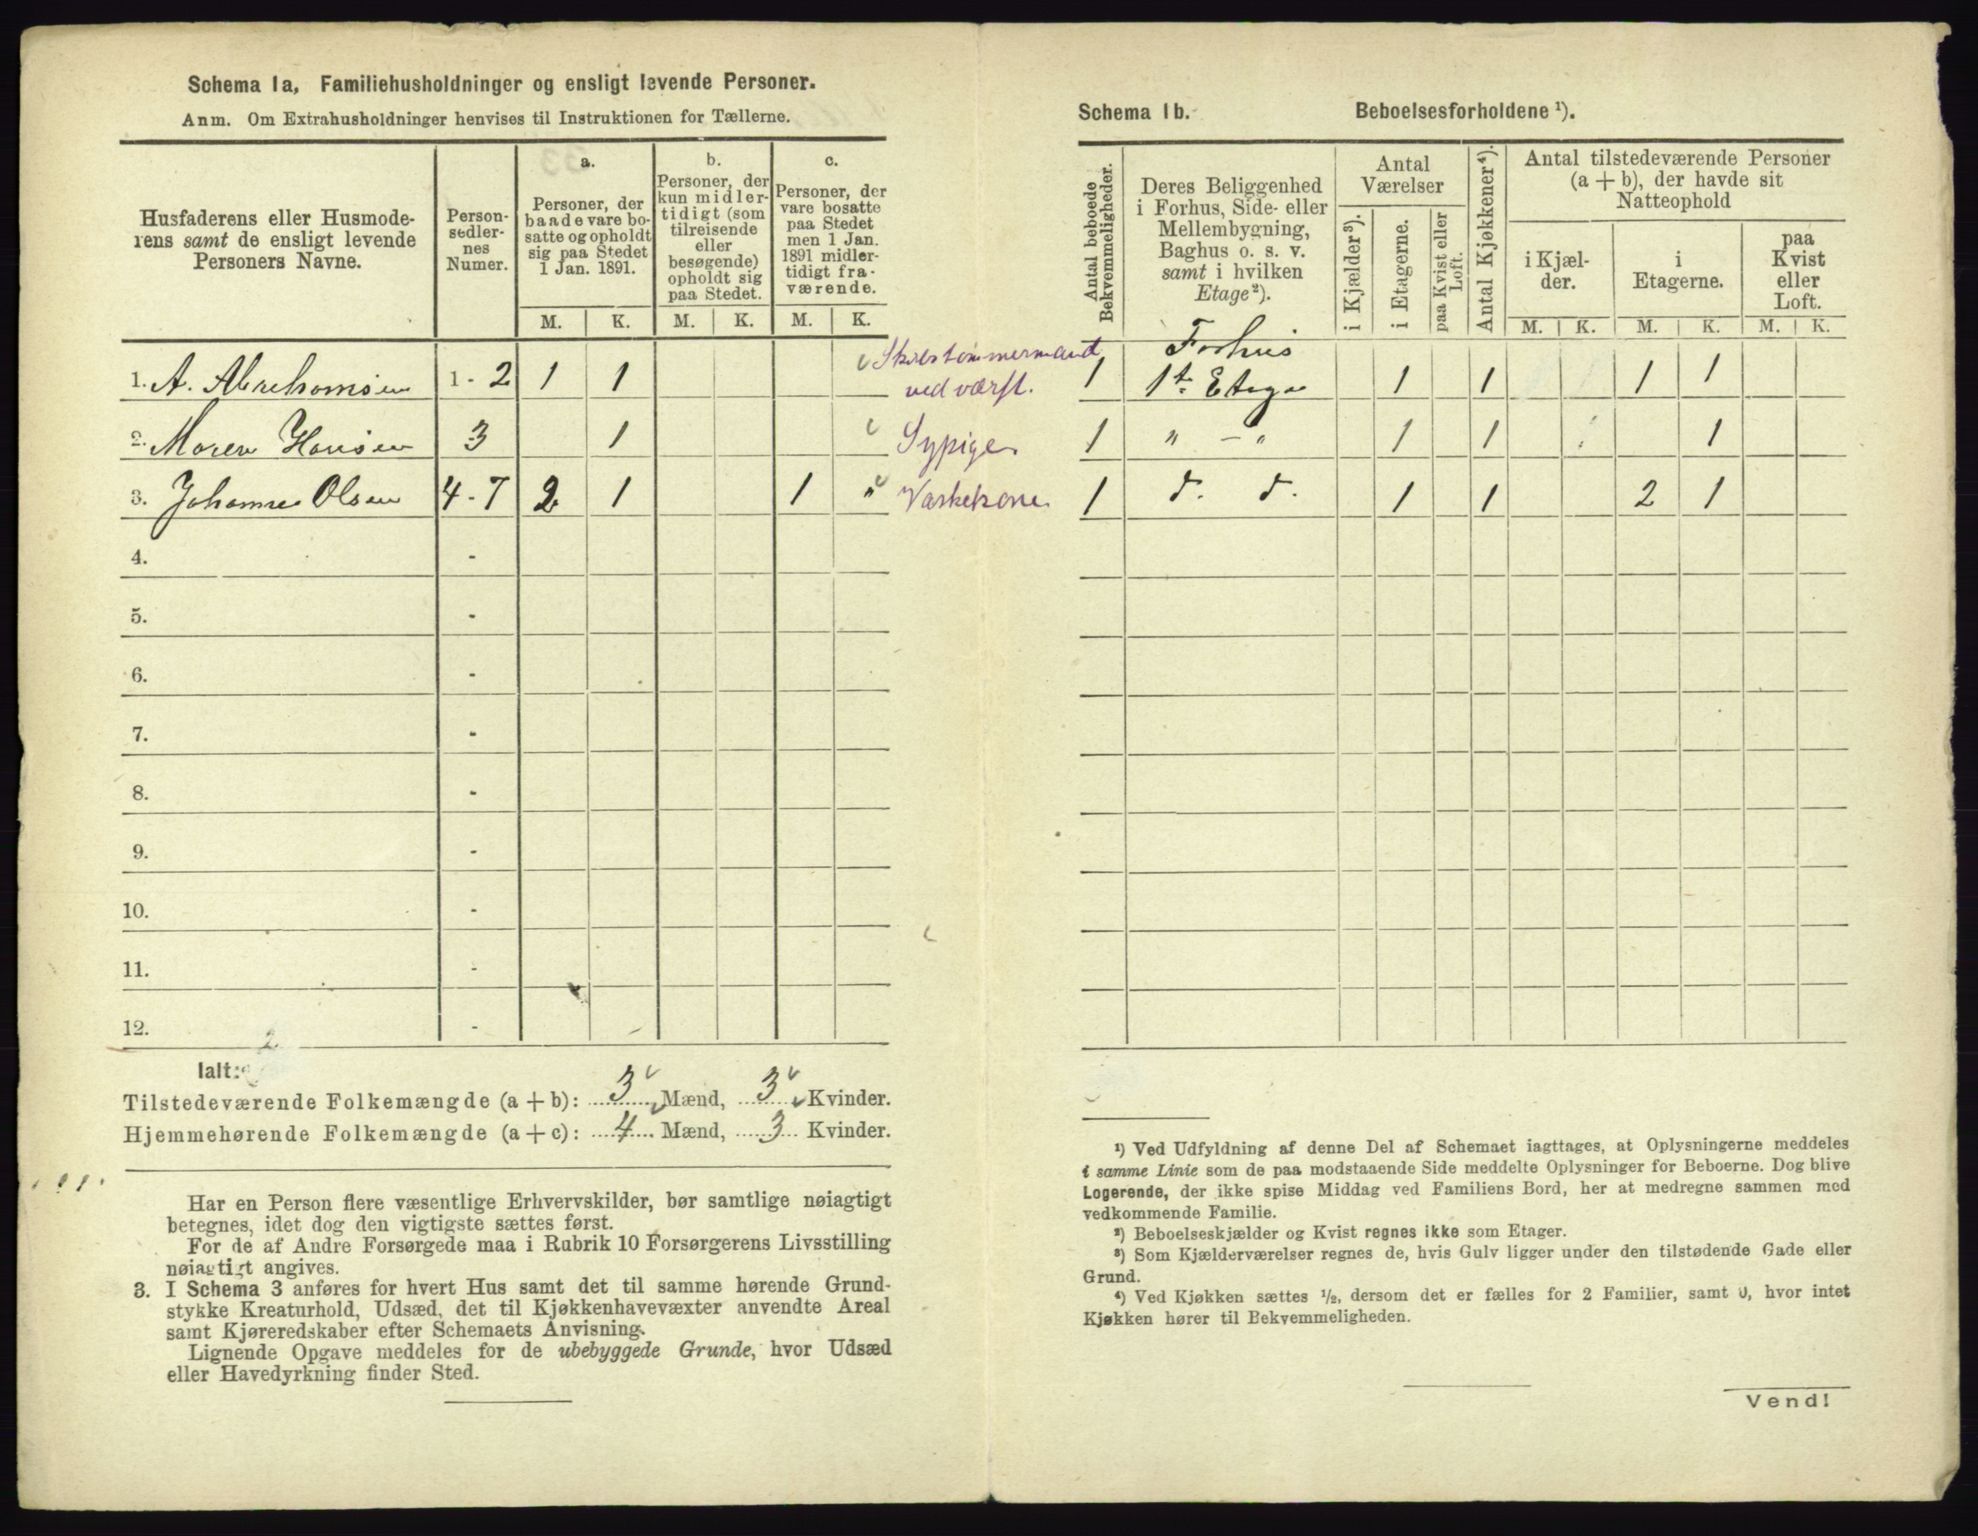 Schema 1a, Familiehusholdninger og ensligt levende Personer.
Anm. Om Extrahusholdninger henvises til Instruktionen for Tællerne.
Husfaderens eller Husmoderens samt de ensligt levende Personers Navne.
Personsedlernes Numer.
a. Personer, der baade vare bosatte og opholdt sig paa Stedet 1 Jan. 1891.
b. Personer, der kun midlertidigt (som tilreisende eller besøgende) opholdt sig paa Stedet.
c. Personer, der vare bosatte paa Stedet men 1 Jan. 1891 midlertidigt fraværende.
M. K. M. K. M. K.
1. A. Abrahamsen 1 - 2 1 1 Skibstømmermand ved værft.
2. Maren Hansen 3 1 Sypige
3. Johanne Olsen 4 - 7 2 1 1 " Vaskekone
4. -
5. -
6. -
7. -
8. -
9. -
10. -
11. -
12. -
2
Ialt:
Tilstedeværende Folkemængde (a + b): 3 Mænd, 3 Kvinder.
Hjemmehørende Folkemængde (a + c): 4 Mænd, 3 Kvinder.
Har en Person flere væsentlige Erhvervskilder, bør samtlige nøiagtigt
betegnes, idet dog den vigtigste sættes først.
For de af Andre Forsørgede maa i Rubrik 10 Forsørgerens Livsstilling
nøiagtigt angives.
3. I Schema 3 anføres for hvert Hus samt det til samme hørende Grund-
stykke Kreaturhold, Udsæd, det til Kjøkkenhavevæxter anvendte Areal
samt Kjøreredskaber efter Schemaets Anvisning.
Lignende Opgave meddeles for de ubebyggede Grunde, hvor Udsæd
eller Havedyrkning finder Sted.
Schema 1b. Beboelsesforholdene ¹).
Antal beboede Bekvemmeligheder.
Deres Beliggenhed i Forhus, Side- eller Mellembygning, Baghus o. s. v. samt i hvilken Etage²).
Antal Værelser
i Kjælder³).
i Etagerne.
paa Kvist eller Loft.
Antal Kjøkkener⁴).
Antal tilstedeværende Personer (a + b), der havde sit Natteophold
i Kjælder.
i Etagerne.
paa Kvist eller Loft.
M. K. M. K. M. K.
1 Forhus 1ste Etage 1 1 1 1
1 " — " 1 1 1
1 d. d. 1 1 2 1
¹) Ved Udfyldning af denne Del af Schemaet iagttages, at Oplysningerne meddeles
i samme Linie som de paa modstaaende Side meddelte Oplysninger for Beboerne. Dog blive
Logerende, der ikke spise Middag ved Familiens Bord, her at medregne sammen med
vedkommende Familie.
²) Beboelseskjælder og Kvist regnes ikke som Etager.
³) Som Kjælderværelser regnes de, hvis Gulv ligger under den tilstødende Gade eller
Grund.
⁴) Ved Kjøkken sættes ½, dersom det er fælles for 2 Familier, samt 0, hvor intet
Kjøkken hører til Bekvemmeligheden.
Vend!